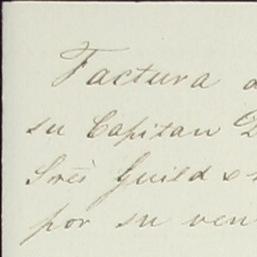 Factura
su Capitan
Sres Guild &
por su ven